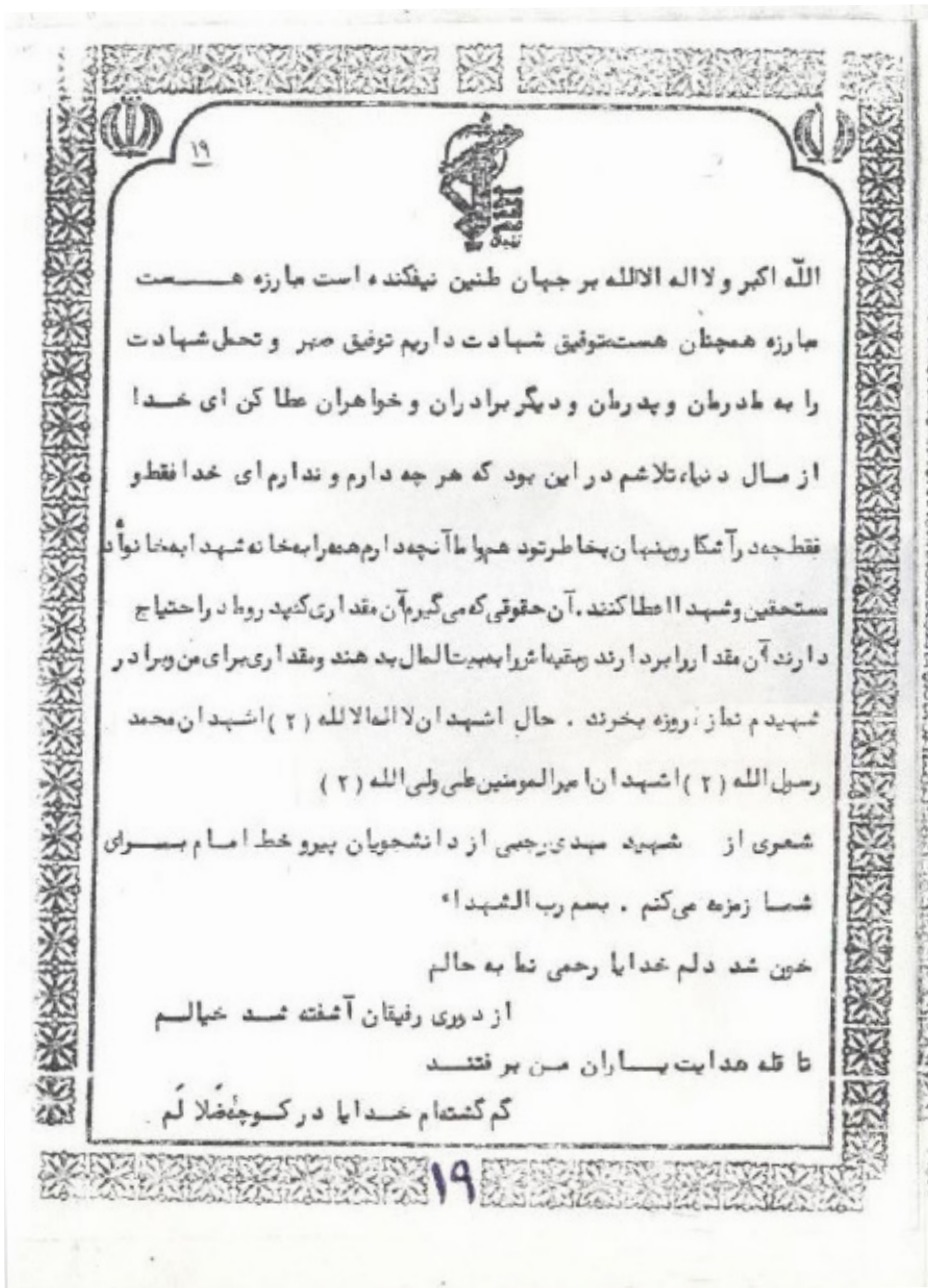 ۱۹
اللّه اکبر و لا اله الا الله بر جهان طنین نیفکنده است مبارزه هست
مبارزه همچنان هست توفیق شهادت داریم توفیق صبر و تحمل شهادت
را به مادرمان و پدرمان و دیگر برادران و خواهران عطا کن ای خدا
از مال دنیا، تلاشم در این بود که هر چه دارم و ندارم ای خدا فقط و
فقط چه در آشکار و پنهان بخاطر تو همه را به خانه شهدا به
مستحقین و شهدا اعطا کنند . آن حقوقی که می‌گیرم آن مقداری که پدر و مادر احتیاج
دارند آن مقدار را بردارند و بقیه‌اش را به بیت المال بدهند و مقداری برای من و برادر
شهیدم نماز روزه بخرند . حال اشهد ان لا اله الا الله ( ۲ ) اشهد ان محمد
رسول الله ( ۲ ) اشهد ان امیر المومنین علی ولی الله ( ۲ )
شعری از شهید مهدی رجبی از دانشجویان پیرو خط امام برای
شما زمزمه می‌کنم . بسم رب الشهداء
خون شد دلم خدایا رحمی نما به حالم
از دوری رفیقان آشفته شد خیالم
تا قله هدایت یاران من برفتند
گم گشته‌ام خدایا در کوچه ضلالم
۱۹